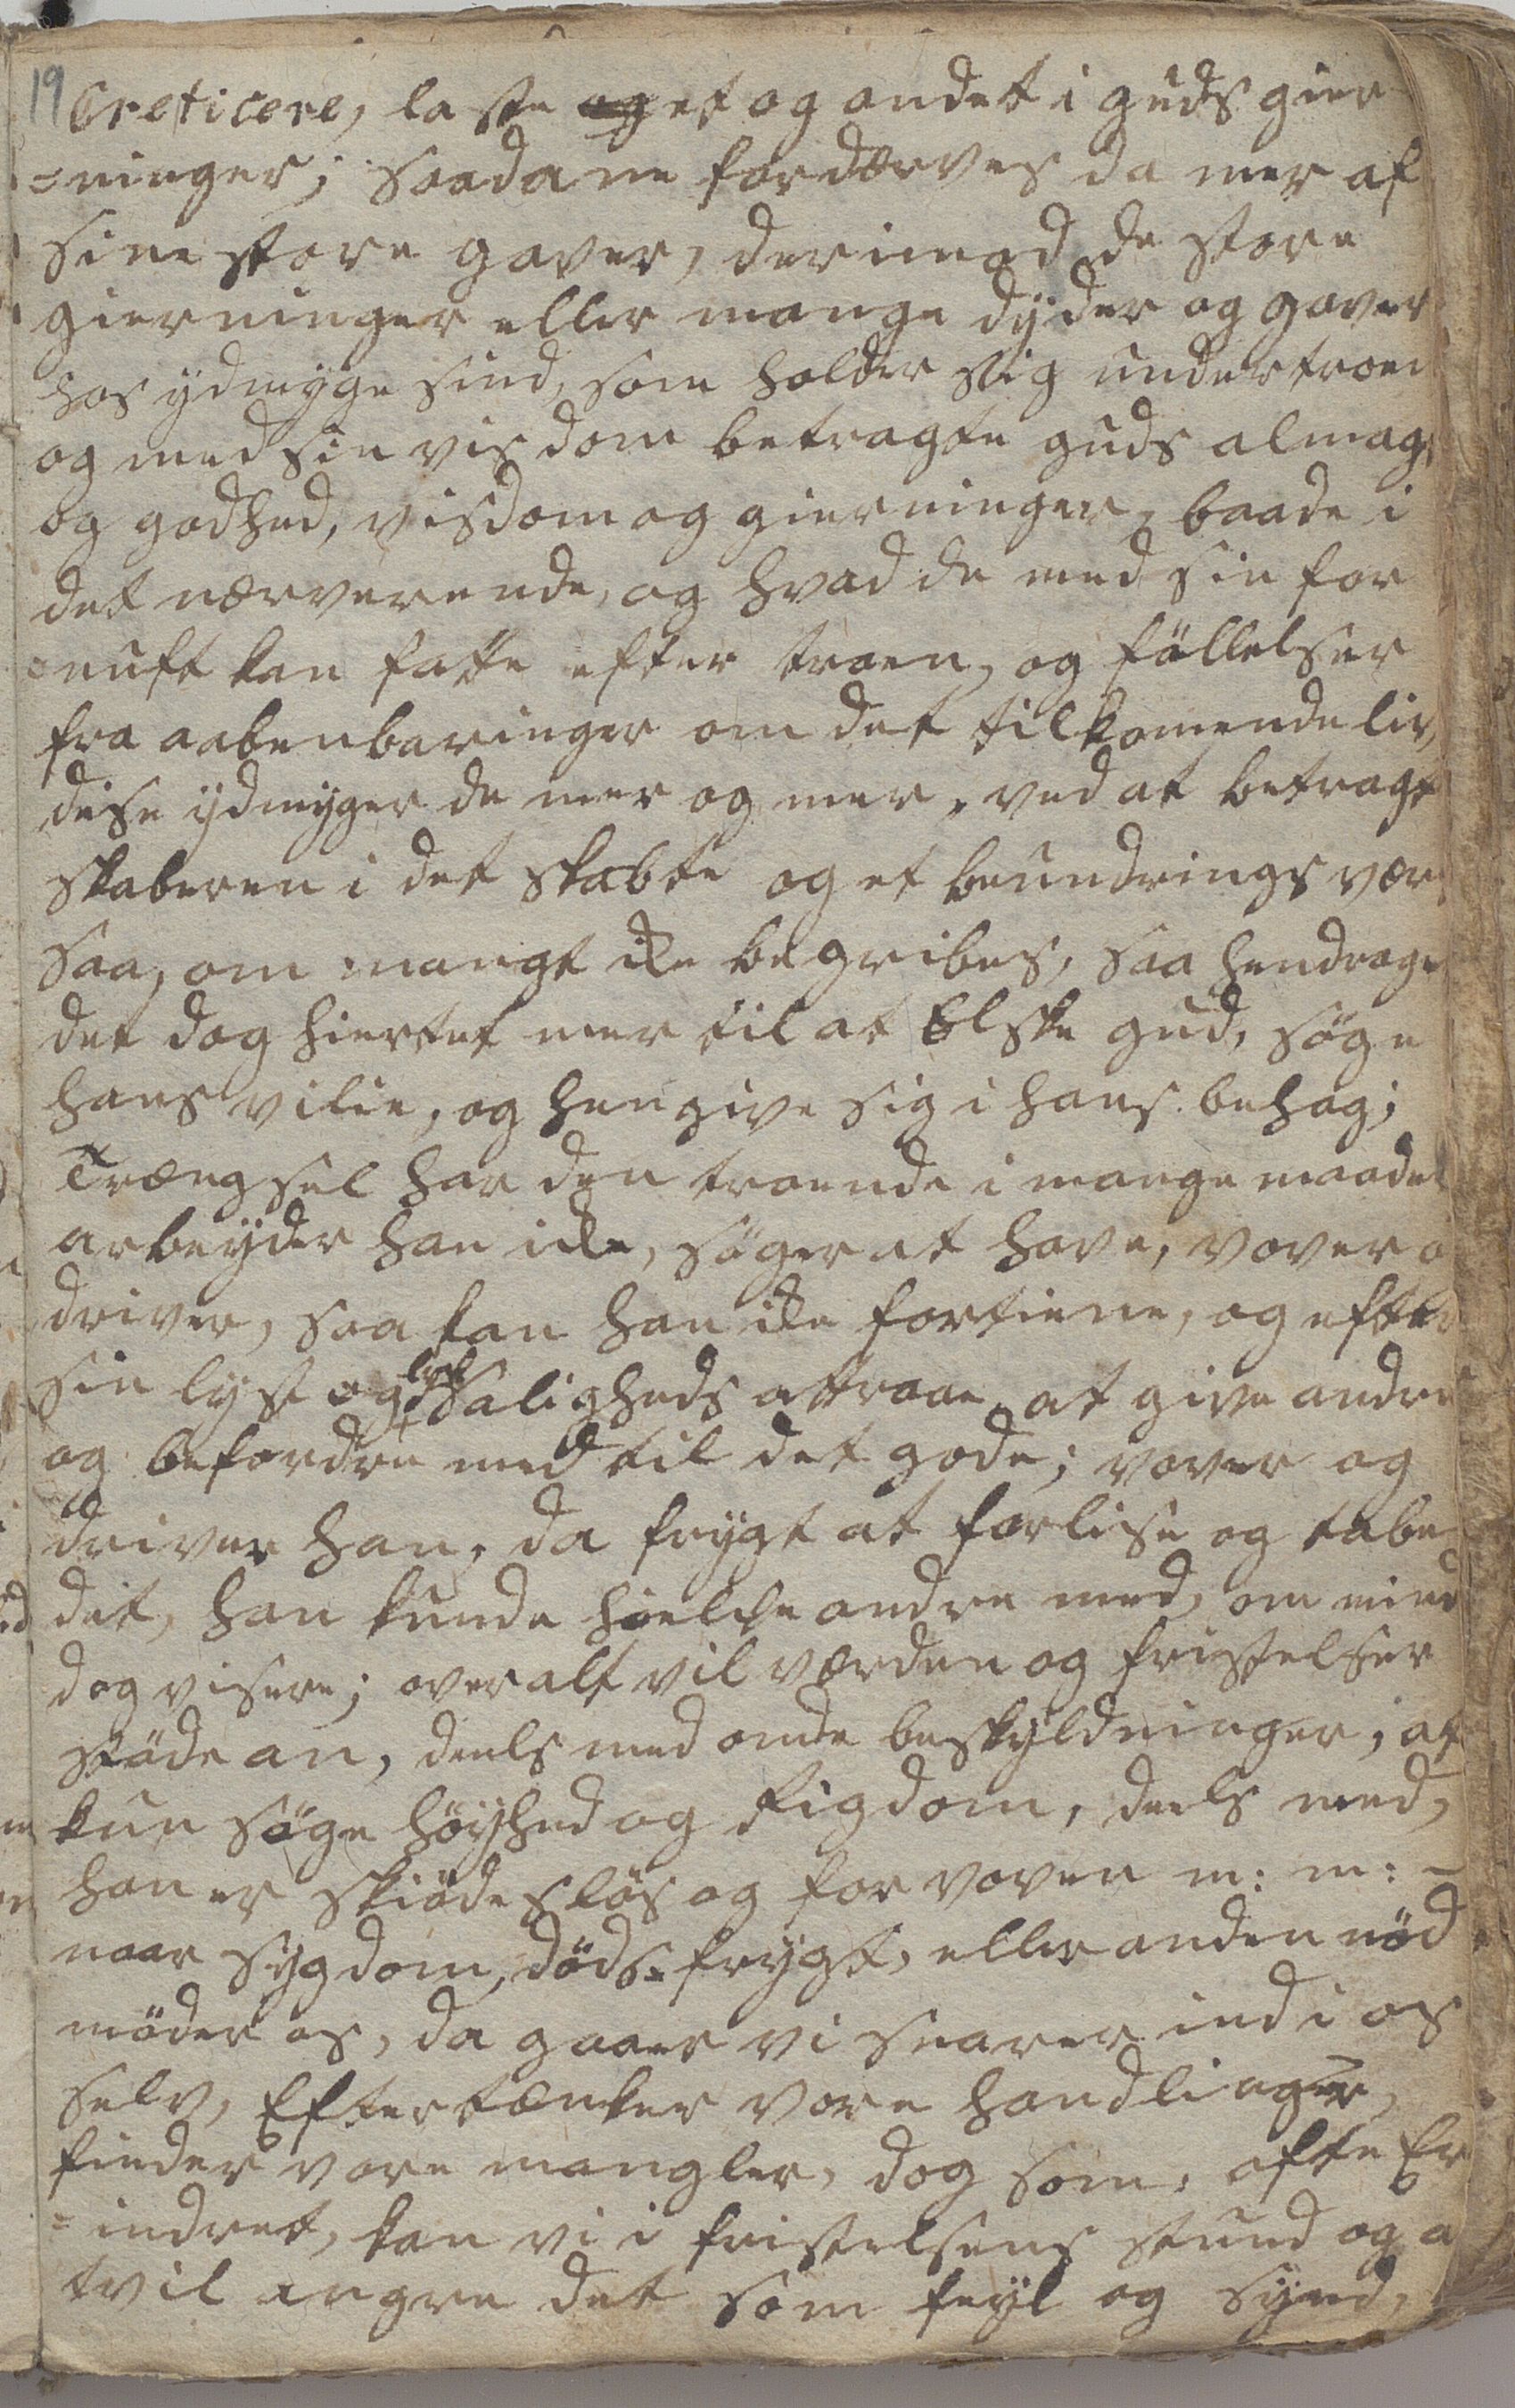 19
Creticere, laste og et og andet i guds gier
=ninger; saadane fordærves da mer af
sine store gaver, derimod de store
gierninger eller mange dyder og gaver
hos ydmyge sind, som holder sig under troen
og med sin visdom betragte guds almagt
og godhed, visdom og gierninger, baade i
det nærverende, og hvad de med sin for
=nuft kan fatte efter troen, og föllelser
fra aabenbaringer om det tilkomende liv,
dise ydmyger de mer og mer, ved at betragte
skaberen i det skabte og et beundrings vær
saa, om mangt ike begribes, saa hendrager
det dog hiertet mer til at Elske gud, söge
hans vilie, og hengive sig i hans behag;
Trængsel har den troende i mange maader
arbeyder han ike, söger at have, vover o
driver, saa kan han ike fortiene, og efter
sin lyst og lyk Saligheds attraae, at give andre
og befordre med til det gode; vover og
driver han, da frygt at forlise og tabe
dit, han kunde hielpe andre med, om mind
dog visere; overalt vil værden og fristelser
støde an, deels med onde beskyldninger, at
kun söge höyhed og Rigdom, deels med,
han er skiödeslös og forvoven m: m: -
naar sygdom, döds-frygt, eller anden nöd
möder os, da gaaer vi snarer ind i os
selv, Eftertænker vore handlinger,
finder vore mangler, dog som, ofte Er
=indret, kan vi i fristelsens stund og a
tvil angre det som feyl og synd,